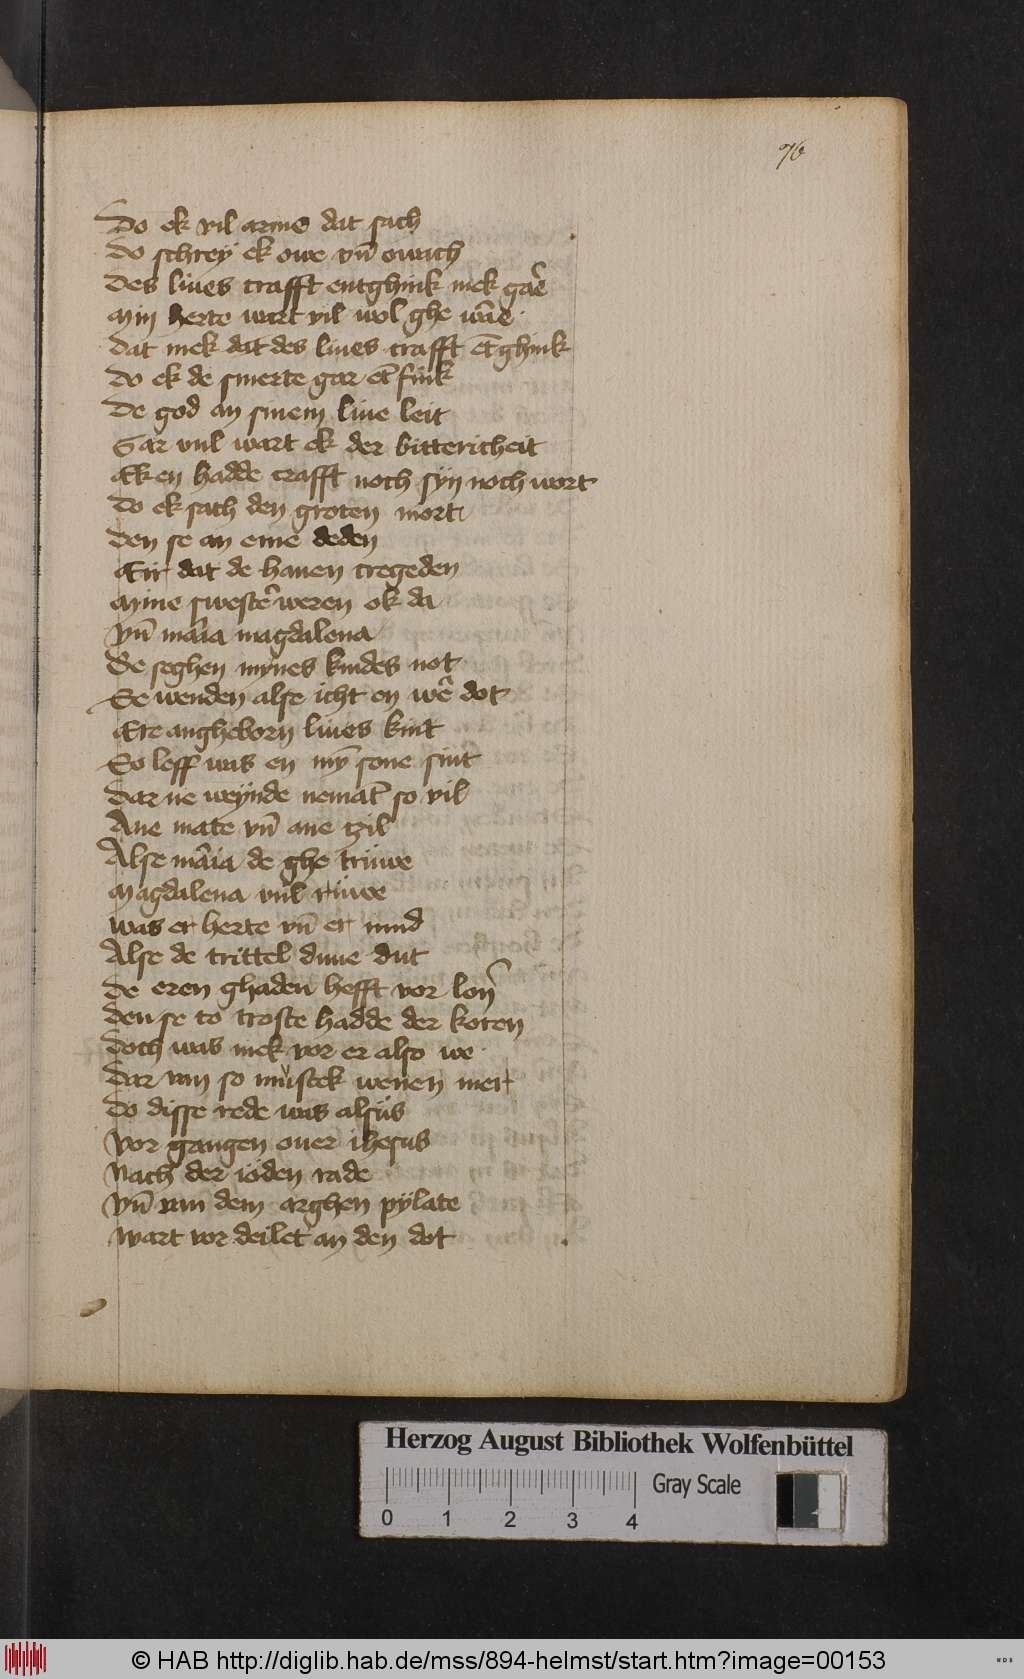 76
Do ek vil arme dat sach
do schrey ek owe vn̄ owach
des liues crafft entghink mek gar̄e
Min herte wart vil wol ghe wār̄e
dat mek dat des liues crafft ēt ghink
do ek de smerte gar ēt fink
De god an sinem liue leit
Gar vul wart ek der bittericheit
Ek en hadde crafft noch syn noch wort
do ek sach den groten mort
den se an eme deden
Eir dat de hauen tregeden
Mine swester̄ weren ok da
Vn̄ mār̄ia magdalena
De seghen mynes kindes not
Se wenden alse icht en wēr̄ dot
Ere angheborn liues kint
So leff was en my̅ sone sint
dar ne weynde nemāt so vil
Ane mate vn̄ ane tzil
Alse mār̄ia de ghe trüwe
Magdalena vul rüwe
was er herte vn̄ er mud
Alse de trittel duue dut
de eren ghaden hefft vor lorn̄
den se to troste hadde der koren
doch was mek vor er also we
dar van so must ek wenen mer
do disse rede was alsüs
Vor gangen ouer ihesus
Nach der iöden rade
Vn̄ van dem arghen pylate
wart vor deilet an den dot
Herzog August Bibliothek Wolfenbüttel
Gray Scale
0 1 2 3 4
© HAB http://diglib.hab.de/mss/894-helmst/start.htm?image=00153